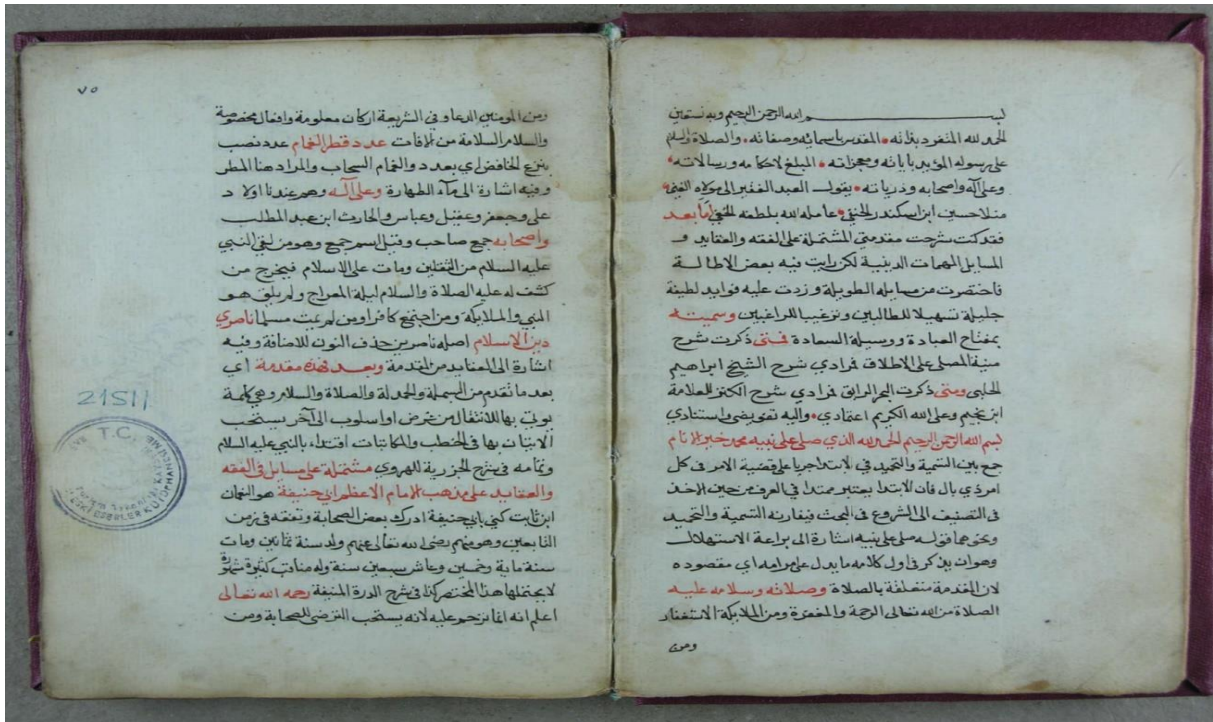 بسم الله الرحمن الرحيم وبه نستعين
الحمد لله المتفرد بذاته المقدس باسمائه وصفاته والصلاة والسلام
على رسوله المؤيد باياته ومعجزاته المبلغ لاحكامه ورسالاته
وعلى آله واصحابه وذرياته يقول العبد الفقير الى مولاه الغني
منلا حسين ابن اسكندر الحنفي عامله الله بلطفه الخفي اما بعد
فقد كنت شرحت مقدمتي المشتملة على الفقه والعقايد و
المسايل المهمات الدينية لكن رايت فيه بعض الاطالة
فاختصرت من مسايله الطويلة وزدت عليه فوايد لطيفة
جليلة تسهيلا للطالبين وترغيبا للراغبين وسميته
بمفتاح العبادة ووسيلة السعادة فمتى ذكرت شرح
منية المصلي على الاطلاق فمرادي شرح الشيخ ابراهيم
الحلبي ومتى ذكرت البحر الرايق فمرادي شرح الكنز للعلامة
ابن نجيم وعلى الله الكريم اعتمادي واليه تفويضي واستنادي
بسم الله الرحمن الرحيم الحمد لله الذي صلى على نبيه محمد خير الانام
جمع بين التسمية والتحميد في الابتدا جريا على قضية الامر في كل
امر ذي بال فان الابتدا يعتبر ممتدا في العرف من حين الاخذ
في التصنيف الى الشروع في البحث فيقارنه التسمية والتحميد
ونحوهما قوله صلى على نبيه اشارة الى براعة الاستهلال
وهو ان يذكر في اول كلامه ما يدل على مرامه اي مقصوده
لان المقدمة متعلقة بالصلاة وصلاته وسلامه عليه
الصلاة من الله تعالى الرحمة والمغفرة ومن الملايكة الاستغفار
ومن
٧٥
ومن المومنين الدعا وفي الشريعة اركان معلومة وافعال مخصوصة
والسلام السلامة من الافات عدد قطر الغمام عدد نصب
بنزع الخافض اي بعدد والغمام السحاب والمراد هنا المطر
وفيه اشارة الى ماء الطهارة وعلى آله وهم عندنا اولاد
علي وجعفر وعقيل وعباس والحارث ابن عبد المطلب
واصحابه جمع صاحب وقيل اسم جمع وهو من لقي النبي
عليه السلام من الثقلين ومات على الاسلام فيخرج من
كشف له عليه الصلاة والسلام ليلة المعراج ولم يلق هو
النبي والملايكة ومن اجتمع كافرا ومن لم يمت مسلما ناصري
دين الاسلام اصله ناصرين حذف النون للاضافة وفيه
اشارة الى العقايد من المقدمة وبعد فهذه مقدمة اي
بعد ما تقدم من البسملة والحمدلة والصلاة والسلام وهي كلمة
يوتى بها للانتقال من غرض او اسلوب الى آخر يستحب
الاتيان بها في الخطب والمكاتبات اقتداء بالنبي عليه السلام
وتمامه في شرح الجزرية للهروي مشتملة على مسايل في الفقه
والعقايد على مذهب الامام الاعظم ابي حنيفة هو النعمان
ابن ثابت كني بابي حنيفة ادرك بعض الصحابة وتفقه في زمن
التابعين وهو منهم رضى الله تعالى عنهم ولد سنة ثمانين ومات
سنة ماية وخمسين وعاش سبعين سنة وله مناقب كثيرة مشهورة
لا يحتملها هذا المختصر كذا في شرح الدرة المنيفة رحمه الله تعالى
اعلم انه انما ترحم عليه لانه يستحب الترضي للصحابة ومن
21511
T.C.